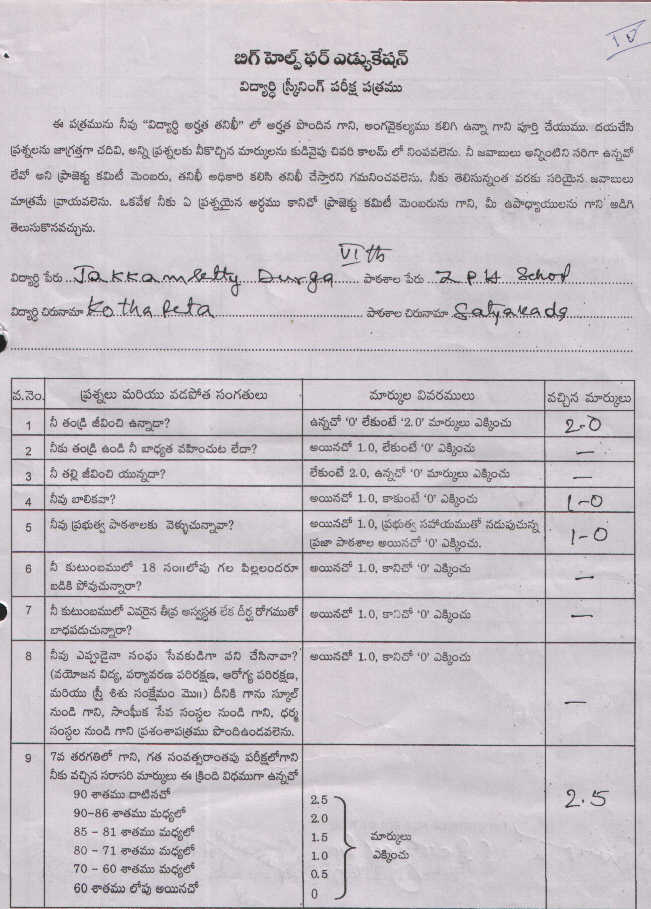 IV
బిగ్ హెల్ప్ ఫర్ ఎడ్యుకేషన్
విద్యార్ధి స్క్రీనింగ్ పరీక్ష పత్రము
ఈ పత్రమును నీవు “విద్యార్ధి అర్హత తనిఖీ” లో అర్హత పొందిన గాని, అంగవైకల్యము కలిగి ఉన్నా గాని పూర్తి చేయుము. దయచేసి
ప్రశ్నలను జాగ్రత్తగా చదివి, అన్ని ప్రశ్నలకు నీకొచ్చిన మార్కులను కుడివైపు చివరి కాలమ్ లో నింపవలెను. నీ జవాబులు అన్నింటిని సరిగా ఉన్నవో
లేవో అని ప్రాజెక్టు కమిటీ మెంబరు, తనిఖీ అధికారి కలిసి తనిఖీ చేస్తారని గమనించవలెను. నీకు తెలిసున్నంత వరకు సరియైన జవాబులు
మాత్రమే వ్రాయవలెను. ఒకవేళ నీకు ఏ ప్రశ్నయైన అర్ధము కానిచో ప్రాజెక్టు కమిటీ మెంబరును గాని, మీ ఉపాధ్యాయులను గాని అడిగి
తెలుసుకొనవచ్చును.
VIth
విద్యార్ధి పేరు Jakkamsetty Durga పాఠశాల పేరు Z P H School
విద్యార్ధి చిరునామా Kothapeta పాఠశాల చిరునామా
వ.నెం. ప్రశ్నలు మరియు వడపోత సంగతులు మార్కుల వివరములు వచ్చిన మార్కులు
1 నీ తండ్రి జీవించి ఉన్నాడా? ఉన్నచో '0' లేకుంటే '2.0' మార్కులు ఎక్కించు 2-0
2 నీకు తండ్రి ఉండి నీ బాధ్యత వహించుట లేదా? అయినచో 1.0, లేకుంటే '0' ఎక్కించు —
3 నీ తల్లి జీవించి యున్నదా? లేకుంటే 2.0, ఉన్నచో '0' మార్కులు ఎక్కించు —
4 నీవు బాలికవా? అయినచో 1.0, కాకుంటే '0' ఎక్కించు 1-0
5 నీవు ప్రభుత్వ పాఠశాలకు వెళ్ళుచున్నావా? అయినచో 1.0, ప్రభుత్వ సహాయముతో నడుపుచున్న 1-0
ప్రజా పాఠశాల అయినచో '0' ఎక్కించు.
6 నీ కుటుంబములో 18 సం॥లోపు గల పిల్లలందరూ అయినచో 1.0, కానిచో '0' ఎక్కించు —
బడికి పోవుచున్నారా?
7 నీ కుటుంబములో ఎవరైన తీవ్ర అస్వస్థత లేక దీర్ఘ రోగముతో అయినచో 1.0, కానిచో '0' ఎక్కించు —
బాధపడుచున్నారా?
8 నీవు ఎప్పుడైనా సంఘ సేవకుడిగా పని చేసినావా? అయినచో 1.0, కానిచో '0' ఎక్కించు
(వయోజన విద్య, పర్యావరణ పరిరక్షణ, ఆరోగ్య పరిరక్షణ,
మరియు స్త్రీ శిశు సంక్షేమం మొ॥) దీనికి గాను స్కూల్
నుండి గాని, సాంఘీక సేవ సంస్థల నుండి గాని, ధర్మ —
సంస్థల నుండి గాని ప్రశంశాపత్రము పొందిఉండవలెను.
9 7వ తరగతిలో గాని, గత సంవత్సరాంతపు పరీక్షలోగాని
నీకు వచ్చిన సరాసరి మార్కులు ఈ క్రింది విధముగా ఉన్నచో
90 శాతము దాటినచో 2.5 2.5
90-86 శాతము మధ్యలో 2.0
85 - 81 శాతము మధ్యలో 1.5 మార్కులు
80 - 71 శాతము మధ్యలో 1.0 ఎక్కించు
70 - 60 శాతము మధ్యలో 0.5
60 శాతము లోపు అయినచో 0